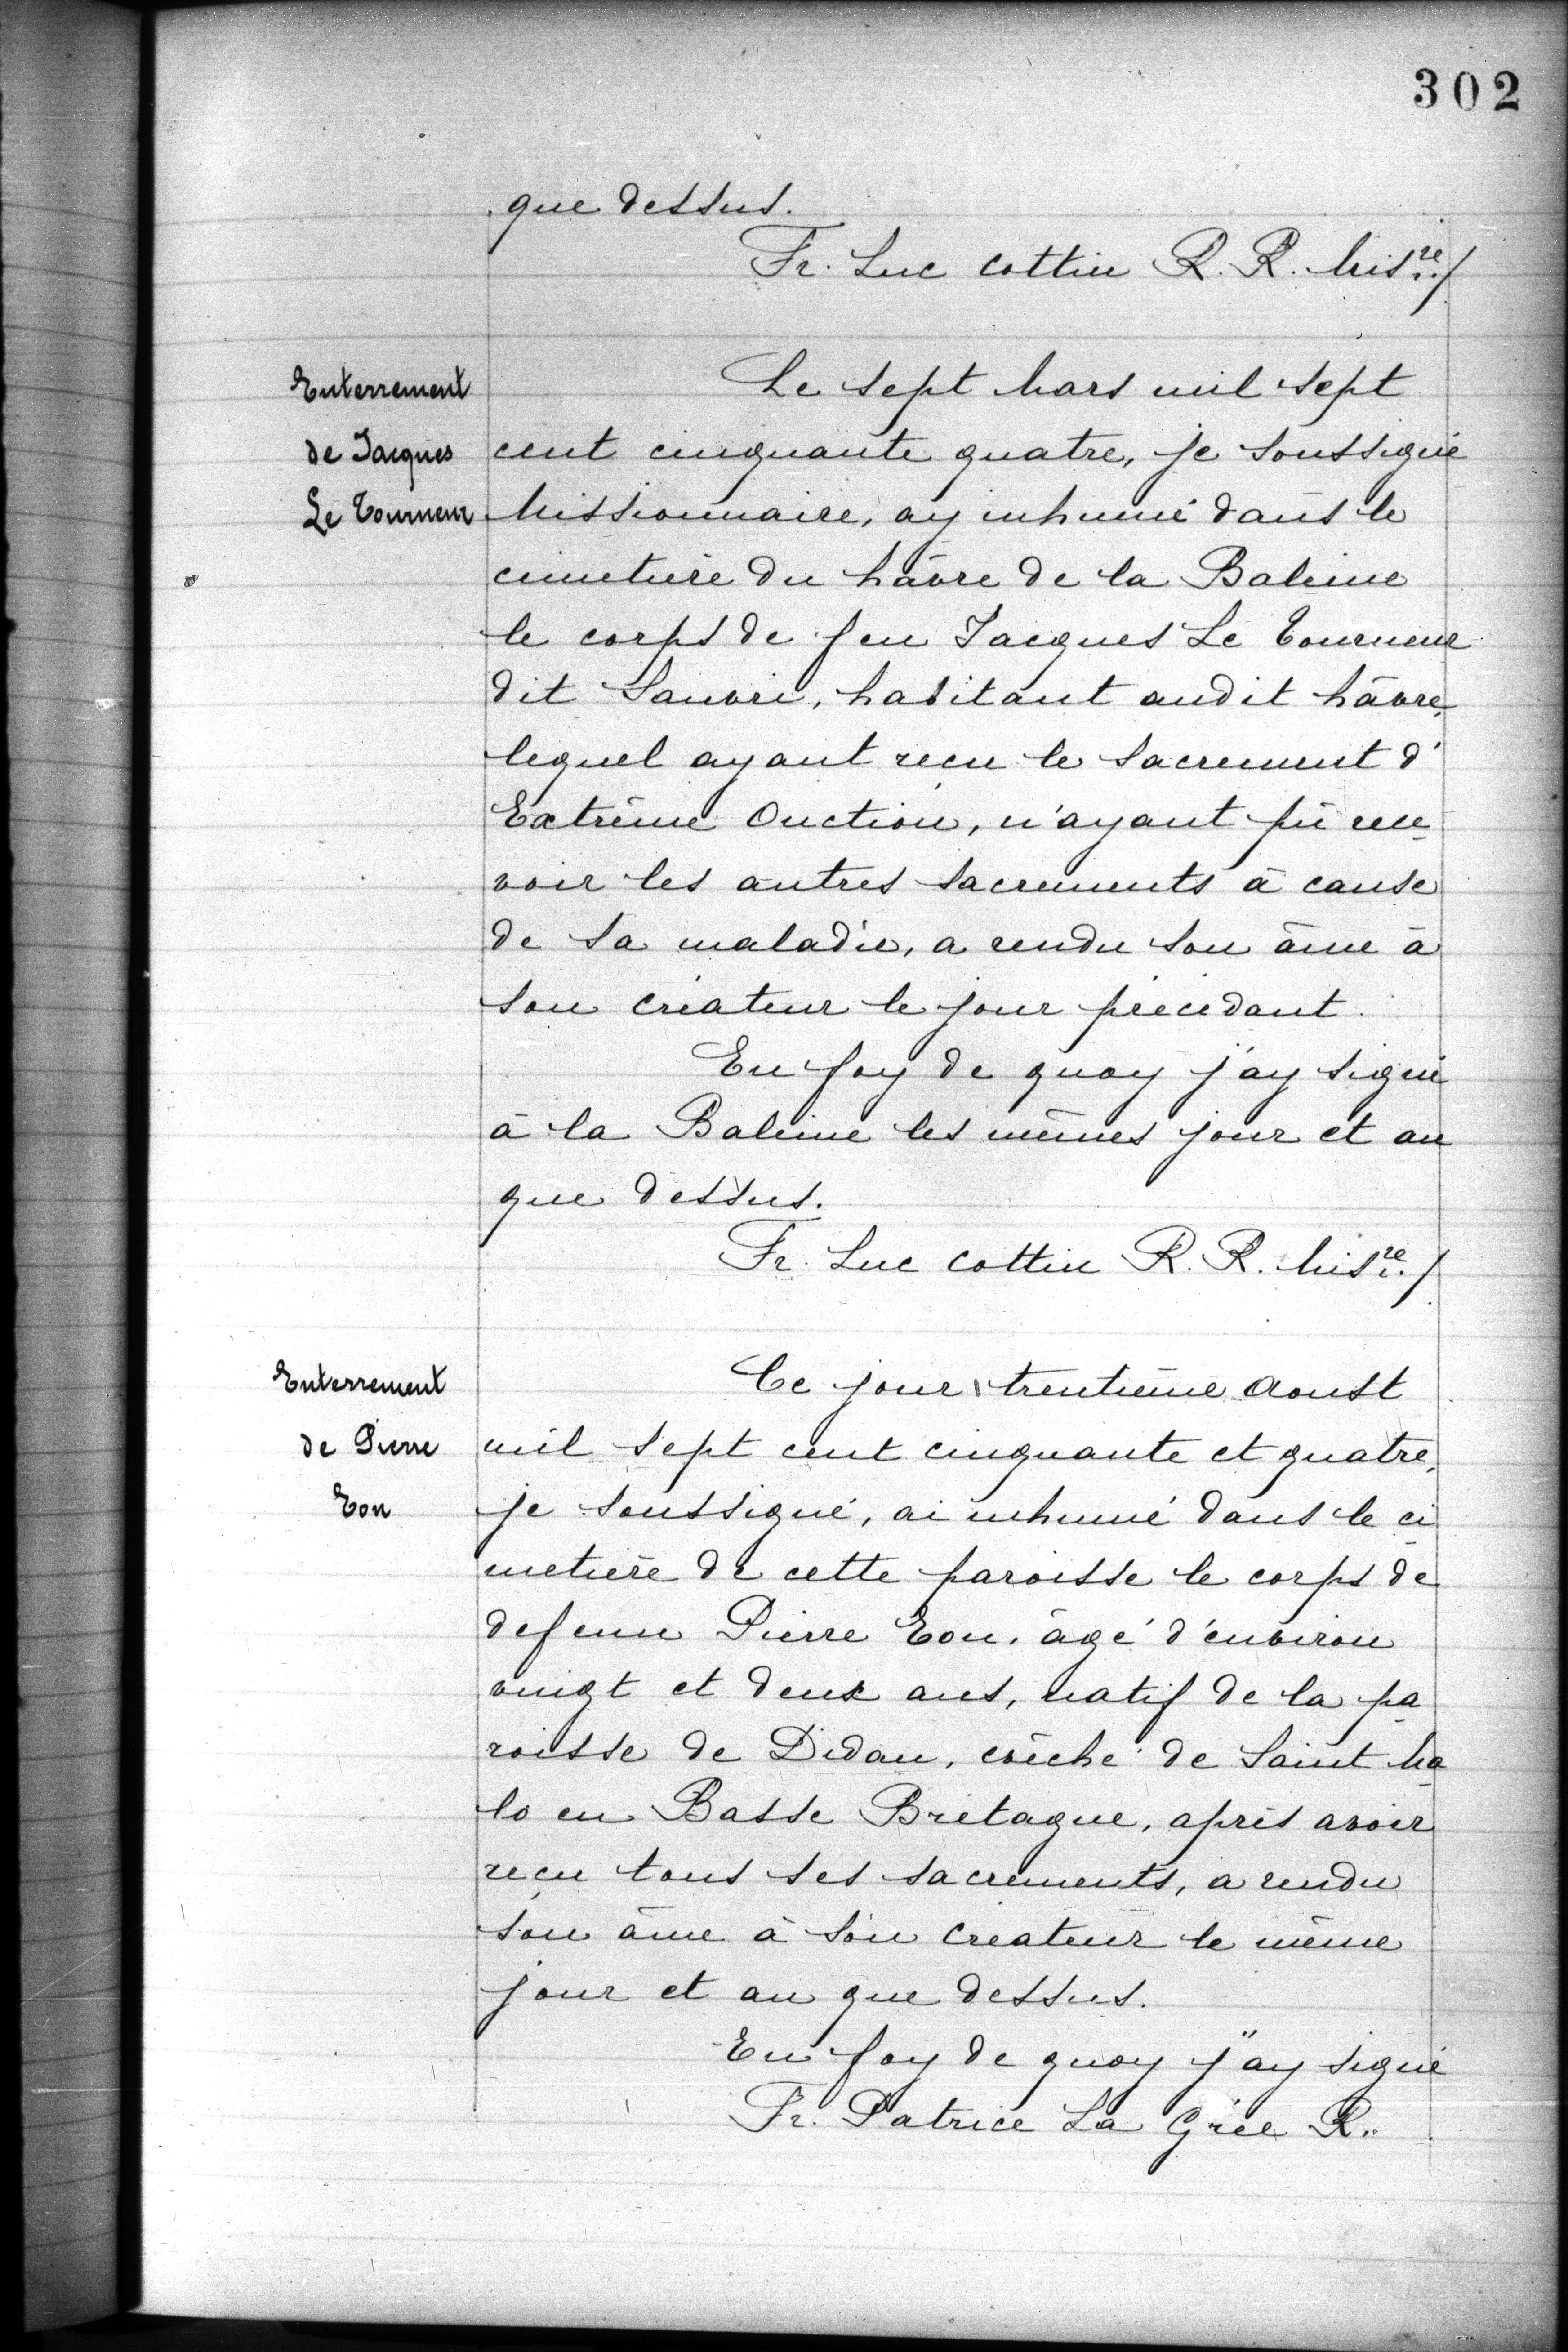 302
que dessus.
Fr. Luc Cottin R. R. Misre./
Enterrement
de Jacques
Le Tourneur
Le sept Mars mil sept
cent cinquante quatre, je soussigné
Missionnaire, ay inhumé dans le
cimetière du hâvre de la Baleine
le corps de feu Jacques Le Tourneur
dit habitant audit hâvre,
lequel ayant reçu le sacrement d'
Extrême Onction, n'ayant pû rece
voir les autres sacrements à cause
de sa maladie, a rendu son âme à
son créateur le jour précédant.
En foy de quoy j'ay signé
à la Baleine les mêmes jour et an
que dessus.
Fr. Luc Cottin R. R. Misre./
Enterrement
de Pierre
Eon
Ce jour trentième Aoust
mil sept cent cinquante et quatre,
je soussigné, ai inhumé dans le ci
metière de cette paroisse le corps de
defunu Pierre Eon, âgé d'environ
vingt et deux ans, natif de la pa
roisse de Didan, evêché de Saint Ma
lo en Basse Bretagne, après avoir
reçu tous ses sacrements, a rendu
son âme à son createur le même
jour et an que dessus.
En foy de quoy j'ay signé
Fr. Patrice La Grée R.